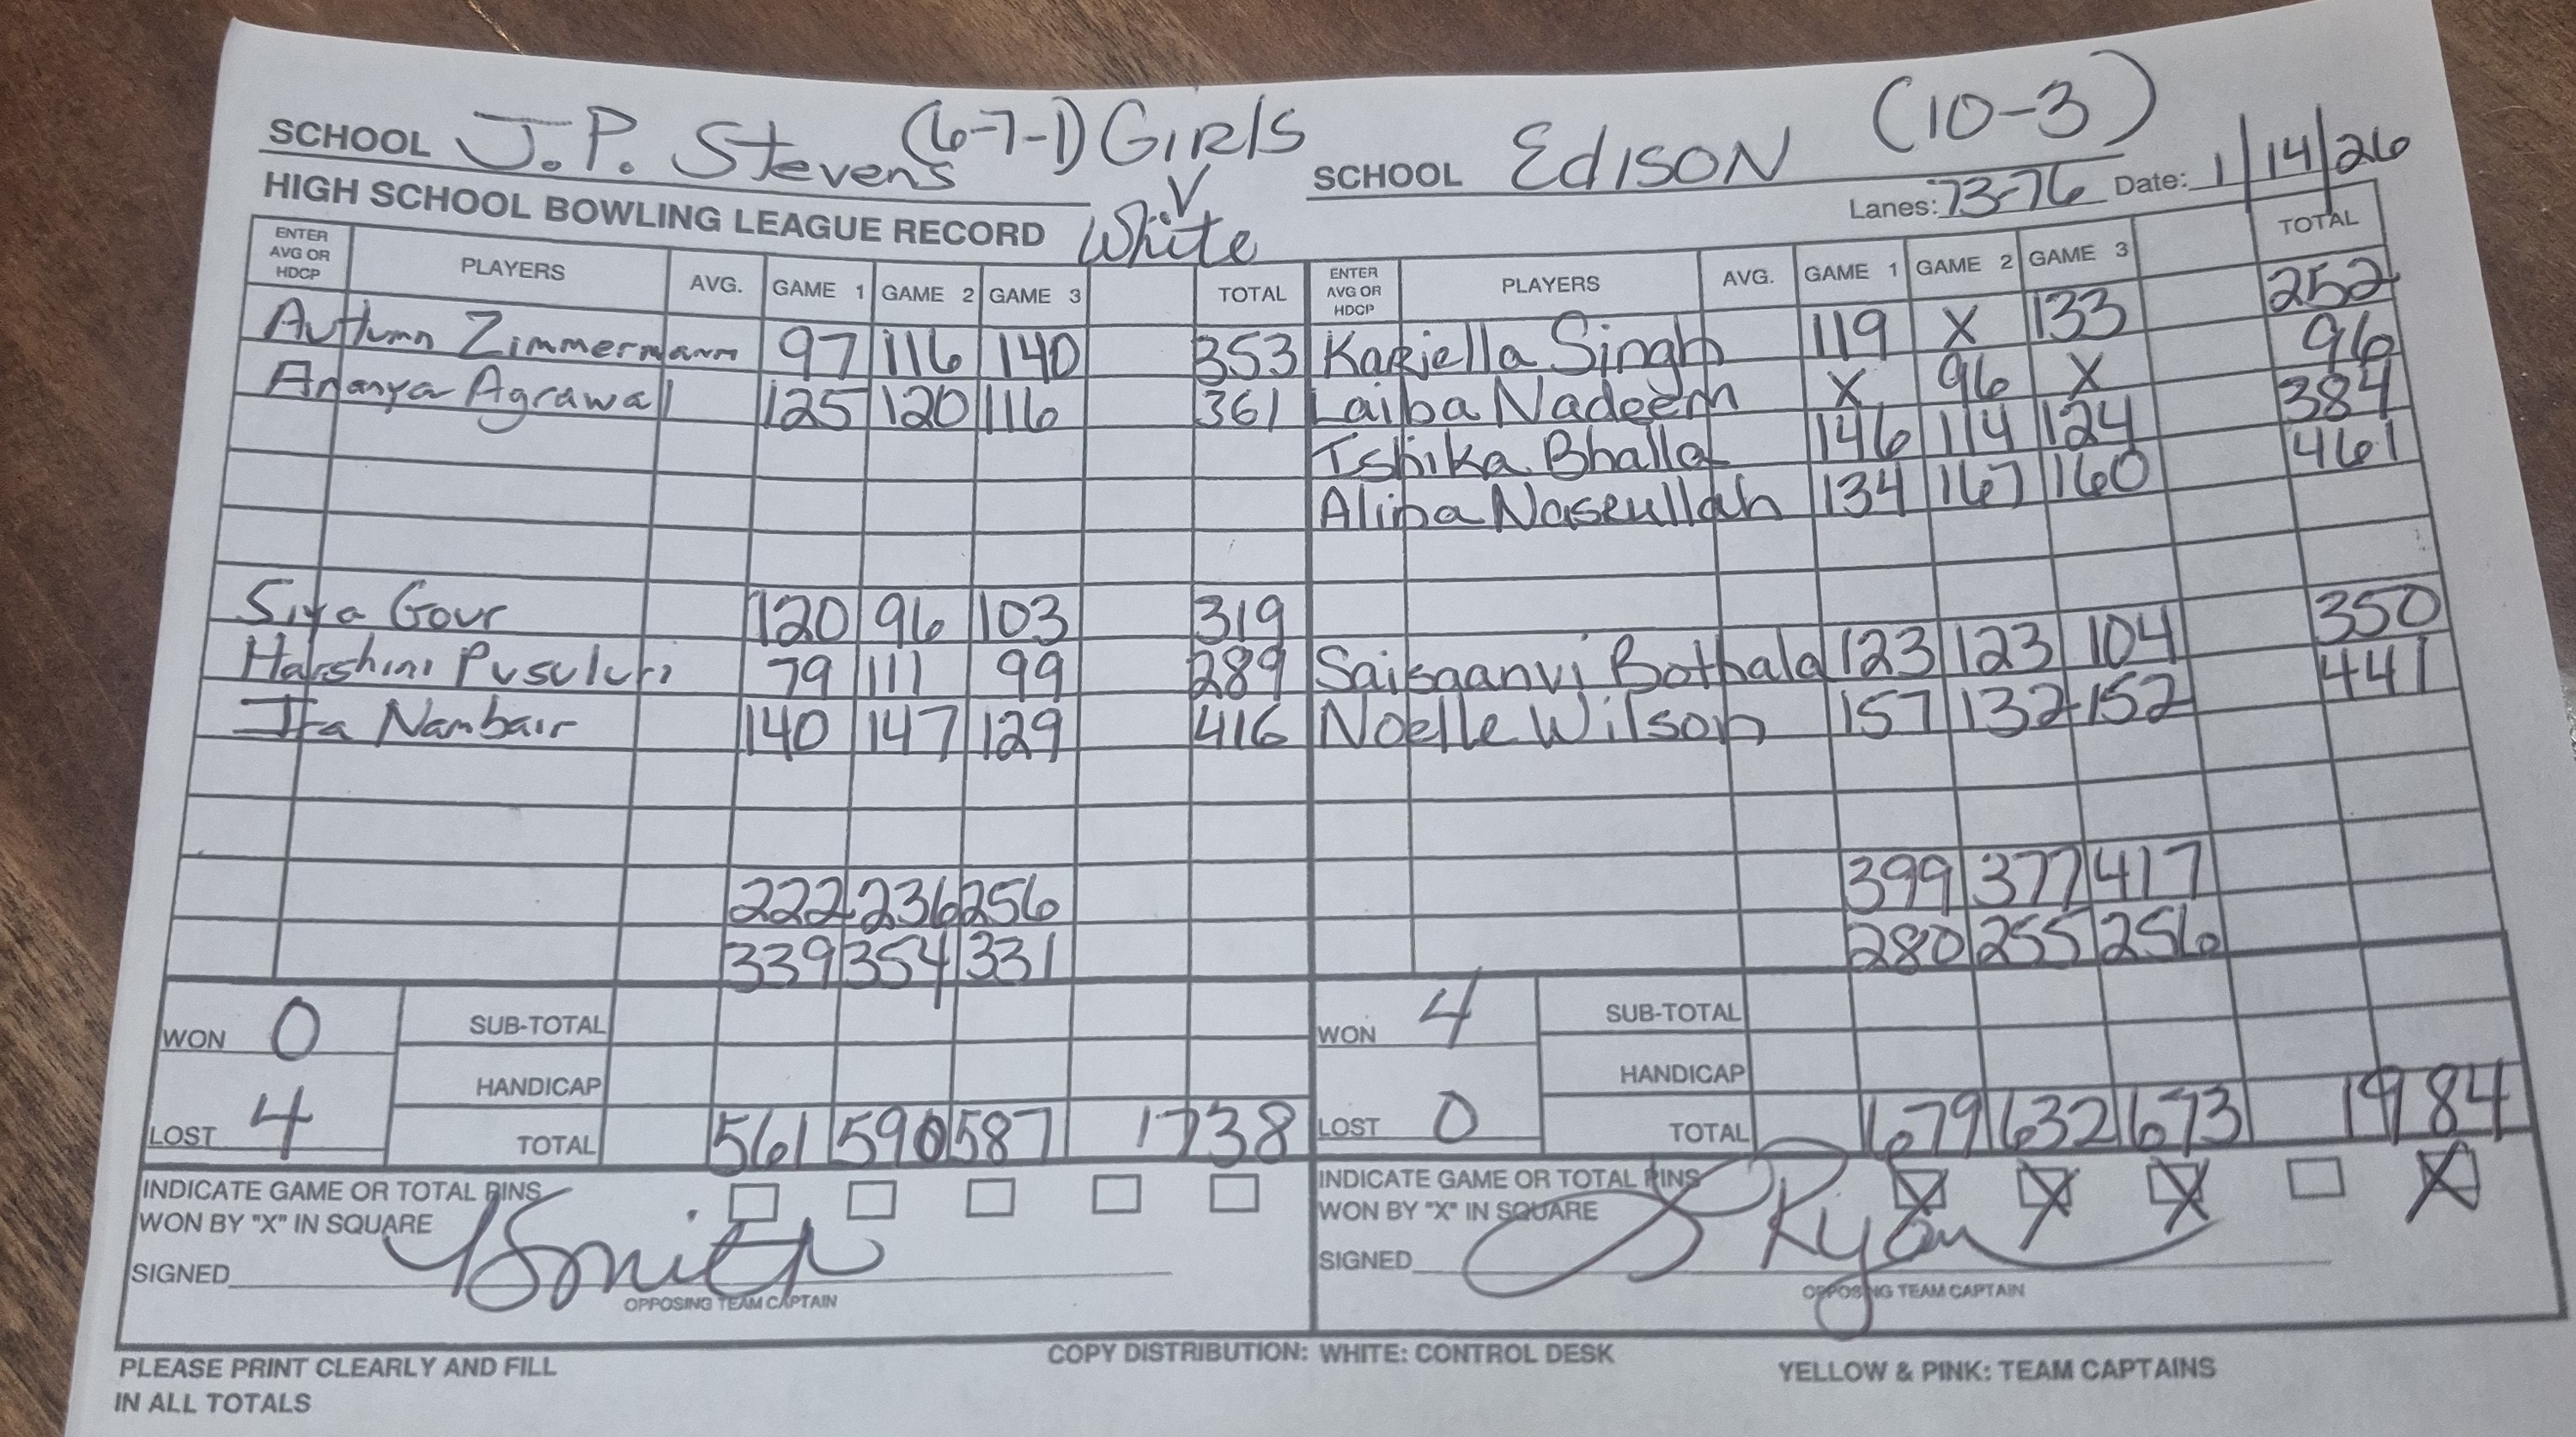 SCHOOL J.P. Stevens (6-7-1) Girls V White
SCHOOL Edison (10-3)
HIGH SCHOOL BOWLING LEAGUE RECORD
Lanes: 73-76 Date: 1/14/26
ENTER AVG OR HDCP PLAYERS AVG. GAME 1 GAME 2 GAME 3 TOTAL
Autumn Zimmermann 97 116 140 353
Ananya Agrawal 125 120 116 361
Siya Gour 120 96 103 319
Harshini Pusuluri 79 111 99 289
Ira Nambair 140 147 129 416
222 236 256
339 354 331
WON 0
LOST 4
SUB-TOTAL
HANDICAP
TOTAL 561 590 587 1738
INDICATE GAME OR TOTAL PINS
WON BY "X" IN SQUARE
SIGNED Smith
OPPOSING TEAM CAPTAIN
ENTER AVG OR HDCP PLAYERS AVG. GAME 1 GAME 2 GAME 3 TOTAL
Karjella Singh 119 X 133 252
Laiba Nadeem X 96 X 96
Ishika Bhalla 146 114 124 384
Aliba Naseullah 134 167 160 461
Saisaanvi Bothala 123 123 104 350
Noelle Wilson 157 132 152 441
399 377 417
280 255 256
WON 4
LOST 0
SUB-TOTAL
HANDICAP
TOTAL 679 632 673 1984
INDICATE GAME OR TOTAL PINS X X X X
WON BY "X" IN SQUARE
SIGNED Ryan
OPPOSING TEAM CAPTAIN
PLEASE PRINT CLEARLY AND FILL
IN ALL TOTALS
COPY DISTRIBUTION: WHITE: CONTROL DESK
YELLOW & PINK: TEAM CAPTAINS